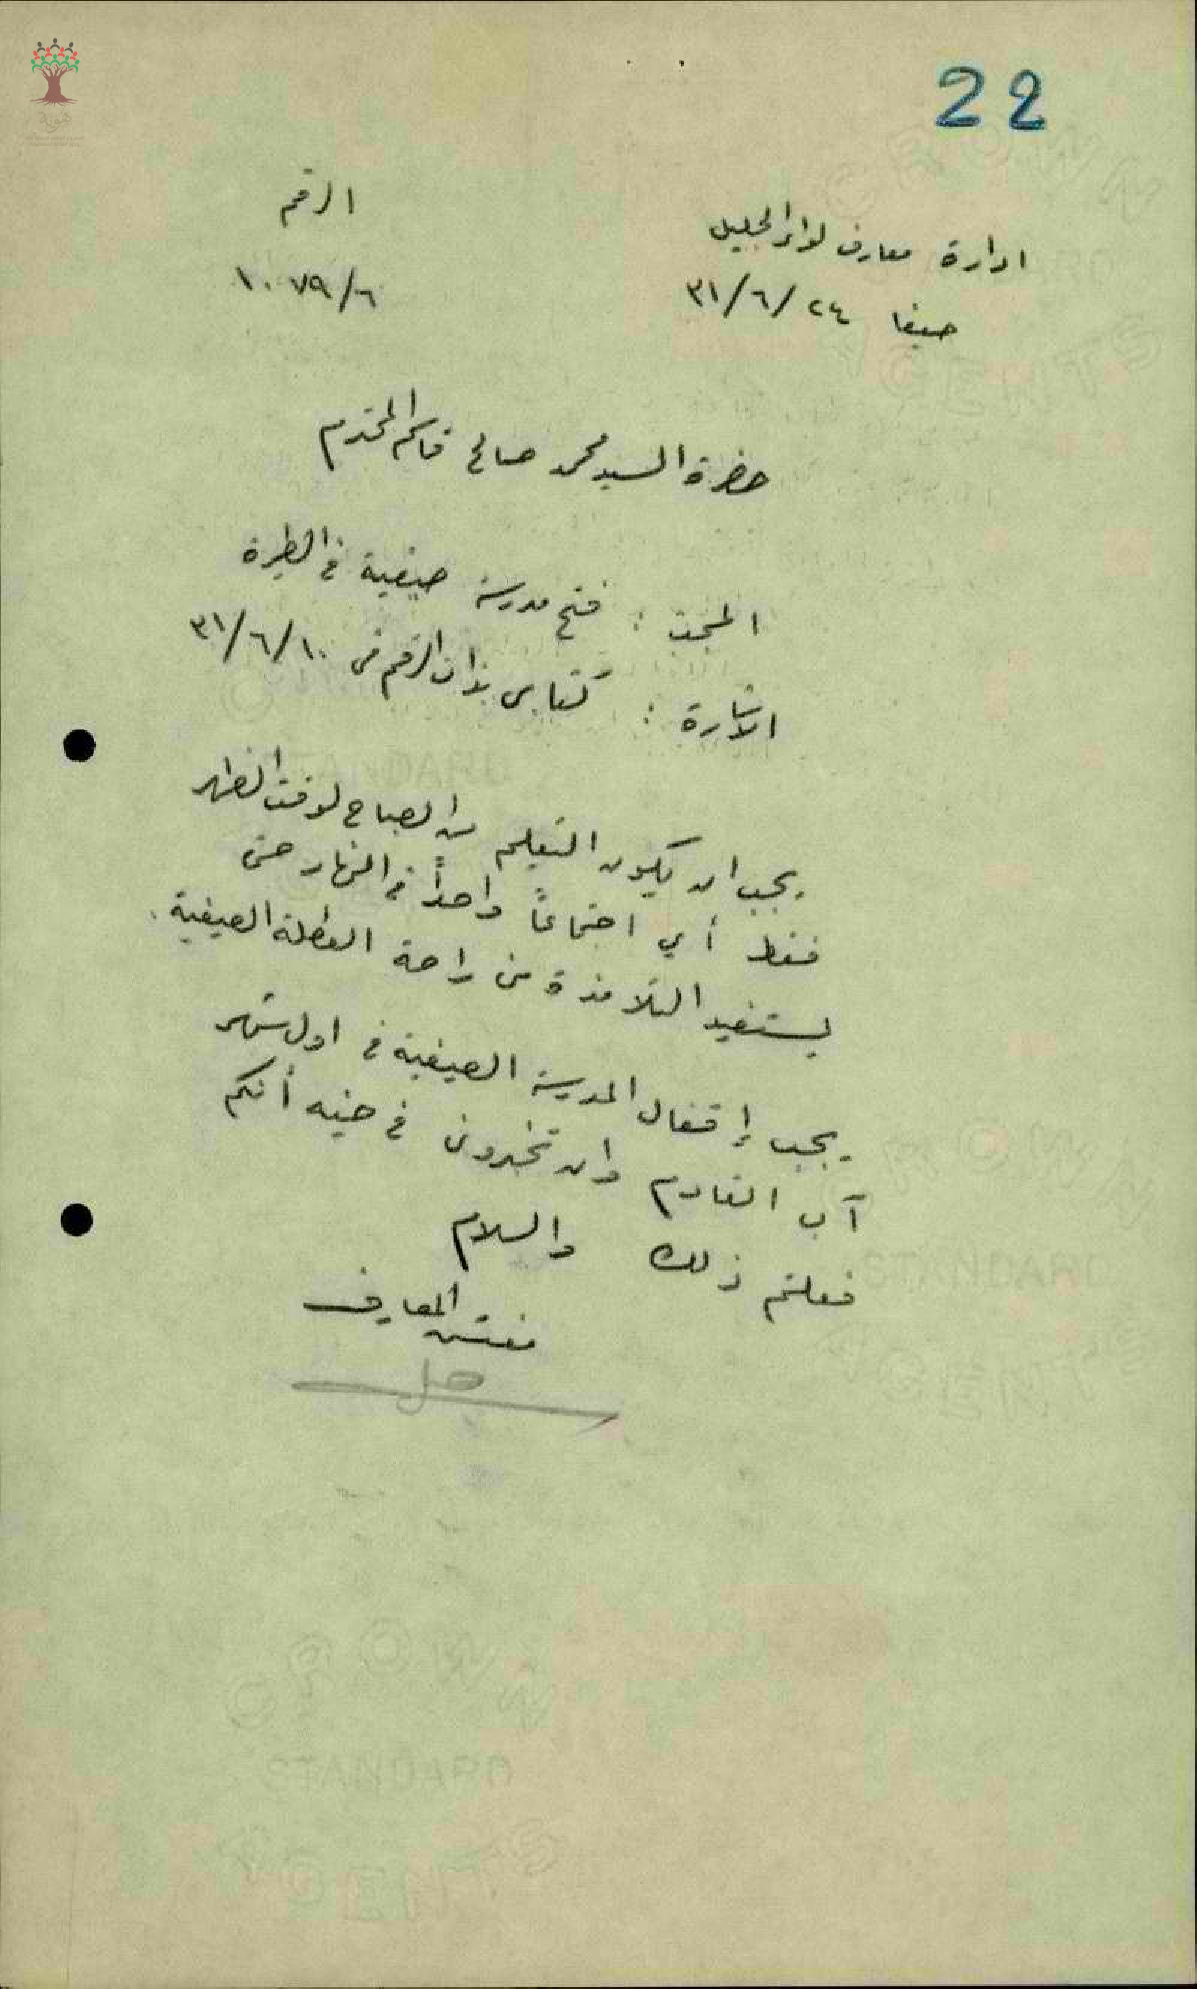 22
ادارة معارف لواء الجليل
حيفا ٢٤/٦/٣١
الرقم
١٠٧٩/٦
حضرة السيد محمد صالح قاسم المحترم
المبحث : فتح مدرسة صيفية في الطيرة
الاشارة : كتابي بذات الرقم في ١٠/٦/٣١
يجب ان يكون التعليم من الصباح لوقت الظهر
فقط أي اجتماعاً واحداً في النهار حتى
يستفيد التلامذة من راحة العطلة الصيفية.
يجب إقفال المدرسة الصيفية في اول شهر
آب القادم وان تخبروني في حينه أنكم
فعلتم ذلك والسلام
مفتش المعارف
هوية
CROWN
STANDARD
AGENTS